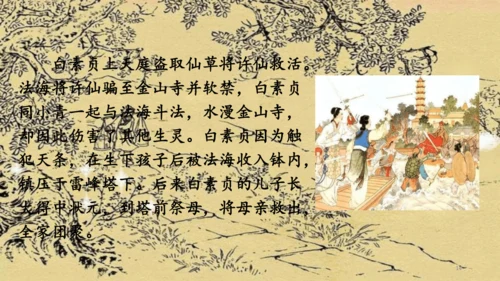 白素贞上天庭盗取仙草将许仙救活。
法海将许仙骗至金山寺并软禁，白素贞
同小青一起与法海斗法，水漫金山寺，
却因此伤害了其他生灵。白素贞因为触
犯天条，在生下孩子后被法海收入钵内，
镇压于雷峰塔下。后来白素贞的儿子长
大得中状元，到塔前祭母，将母亲救出，
全家团聚。